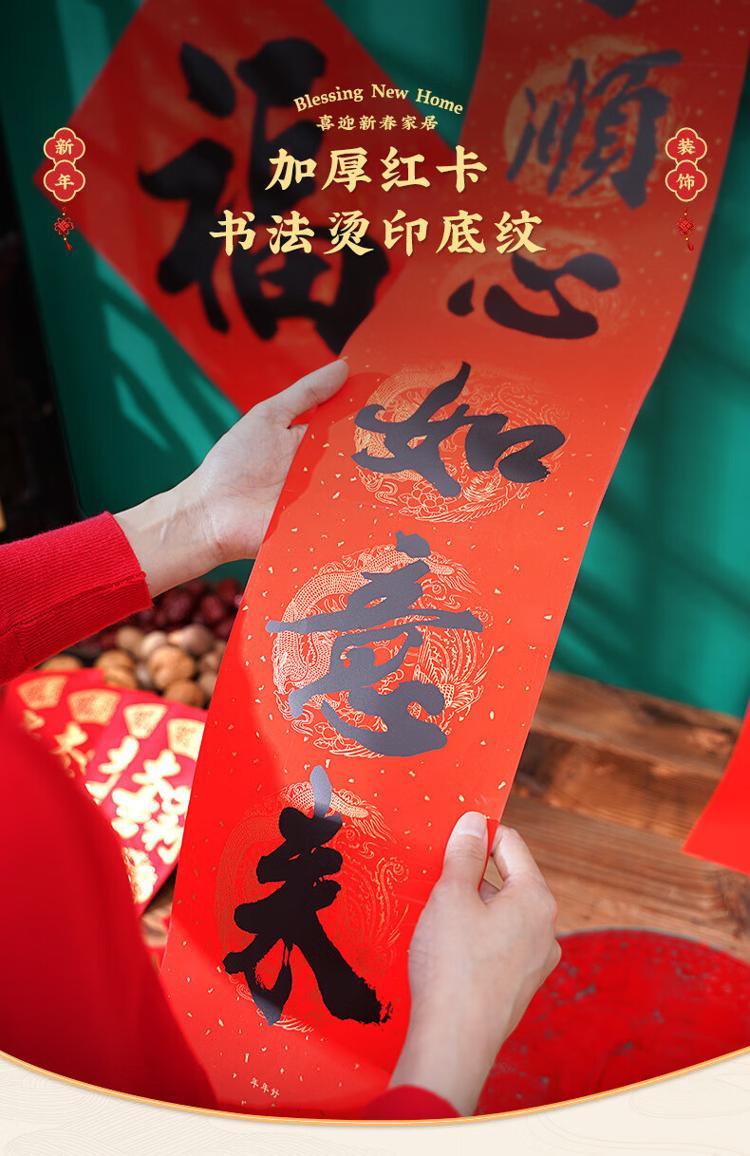 Blessing New Home
喜迎新春家居
加厚红卡
书法烫印底纹
新年
装饰
福
順心如意来
年年好